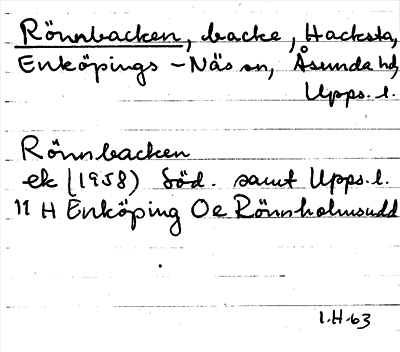 Rönnbacken, backe, Hacksta,
Enköpings-Näs sn, Åsunda hd,
Upps. l.
Rönnbacken
ek (1958) Söd. samt Upps. l.
11 H Enköping Oe Rönnholmsudd
1.H.63